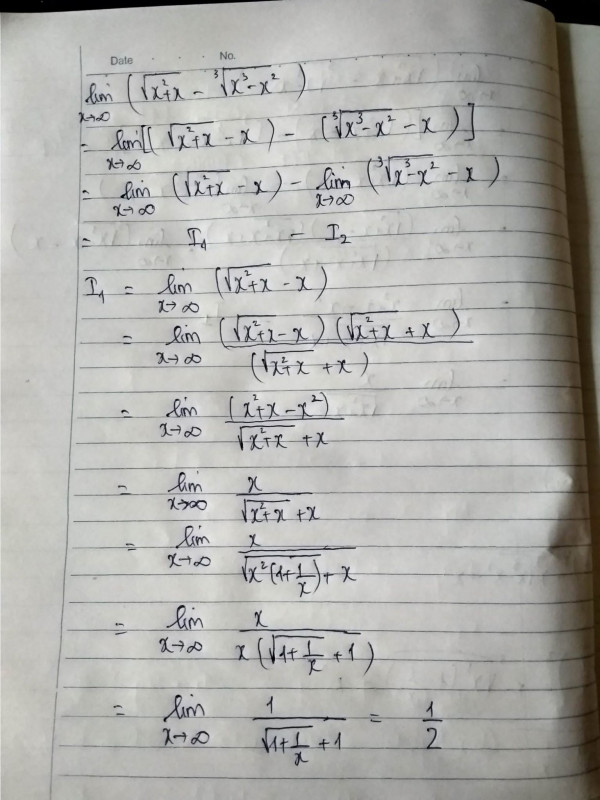 Date No.
lim x→∞ (√(x²+x) − ³√(x³−x²))
= lim x→∞ [(√(x²+x) − x) − (³√(x³−x²) − x)]
= lim x→∞ (√(x²+x) − x) − lim x→∞ (³√(x³−x²) − x)
= I₁ − I₂
I₁ = lim x→∞ (√(x²+x) − x)
= lim x→∞ (√(x²+x) − x)(√(x²+x) + x) / (√(x²+x) + x)
= lim x→∞ (x²+x−x²) / (√(x²+x) + x)
= lim x→∞ x / (√(x²+x) + x)
= lim x→∞ x / (√(x²(1+1/x)) + x)
= lim x→∞ x / (x(√(1+1/x) + 1))
= lim x→∞ 1 / (√(1+1/x) + 1) = 1/2